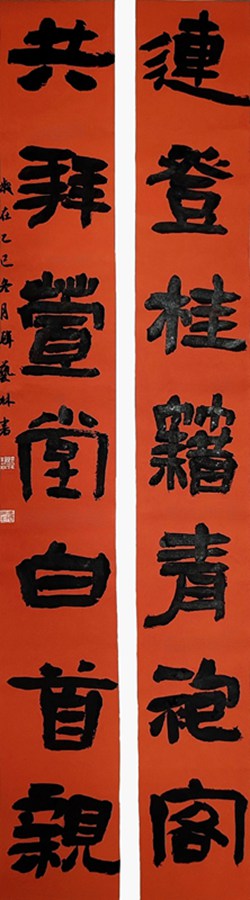 連登桂籍青袍客
共拜萱堂白首親
歲在乙巳冬月 藝林書